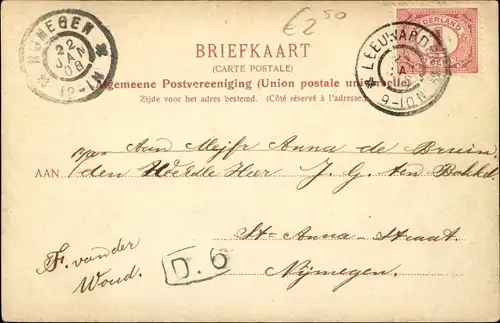 €2 50
NIJMEGEN
22
JAN
08
12-1N
LEEUWARDEN
JA
9-10N
NEDERLAND
BRIEFKAART
(CARTE POSTALE)
Algemeene Postvereeniging (Union postale universelle)
Zijde voor het adres bestemd. (Côté réservé à l'adresse.)
Aan Mejfr Anna de Bruin,
AAN
den Weledle Heer J. G. ten Bokkel
St-Anna-Straat.
Nijmegen.
F. van der
Woud.
D. 6